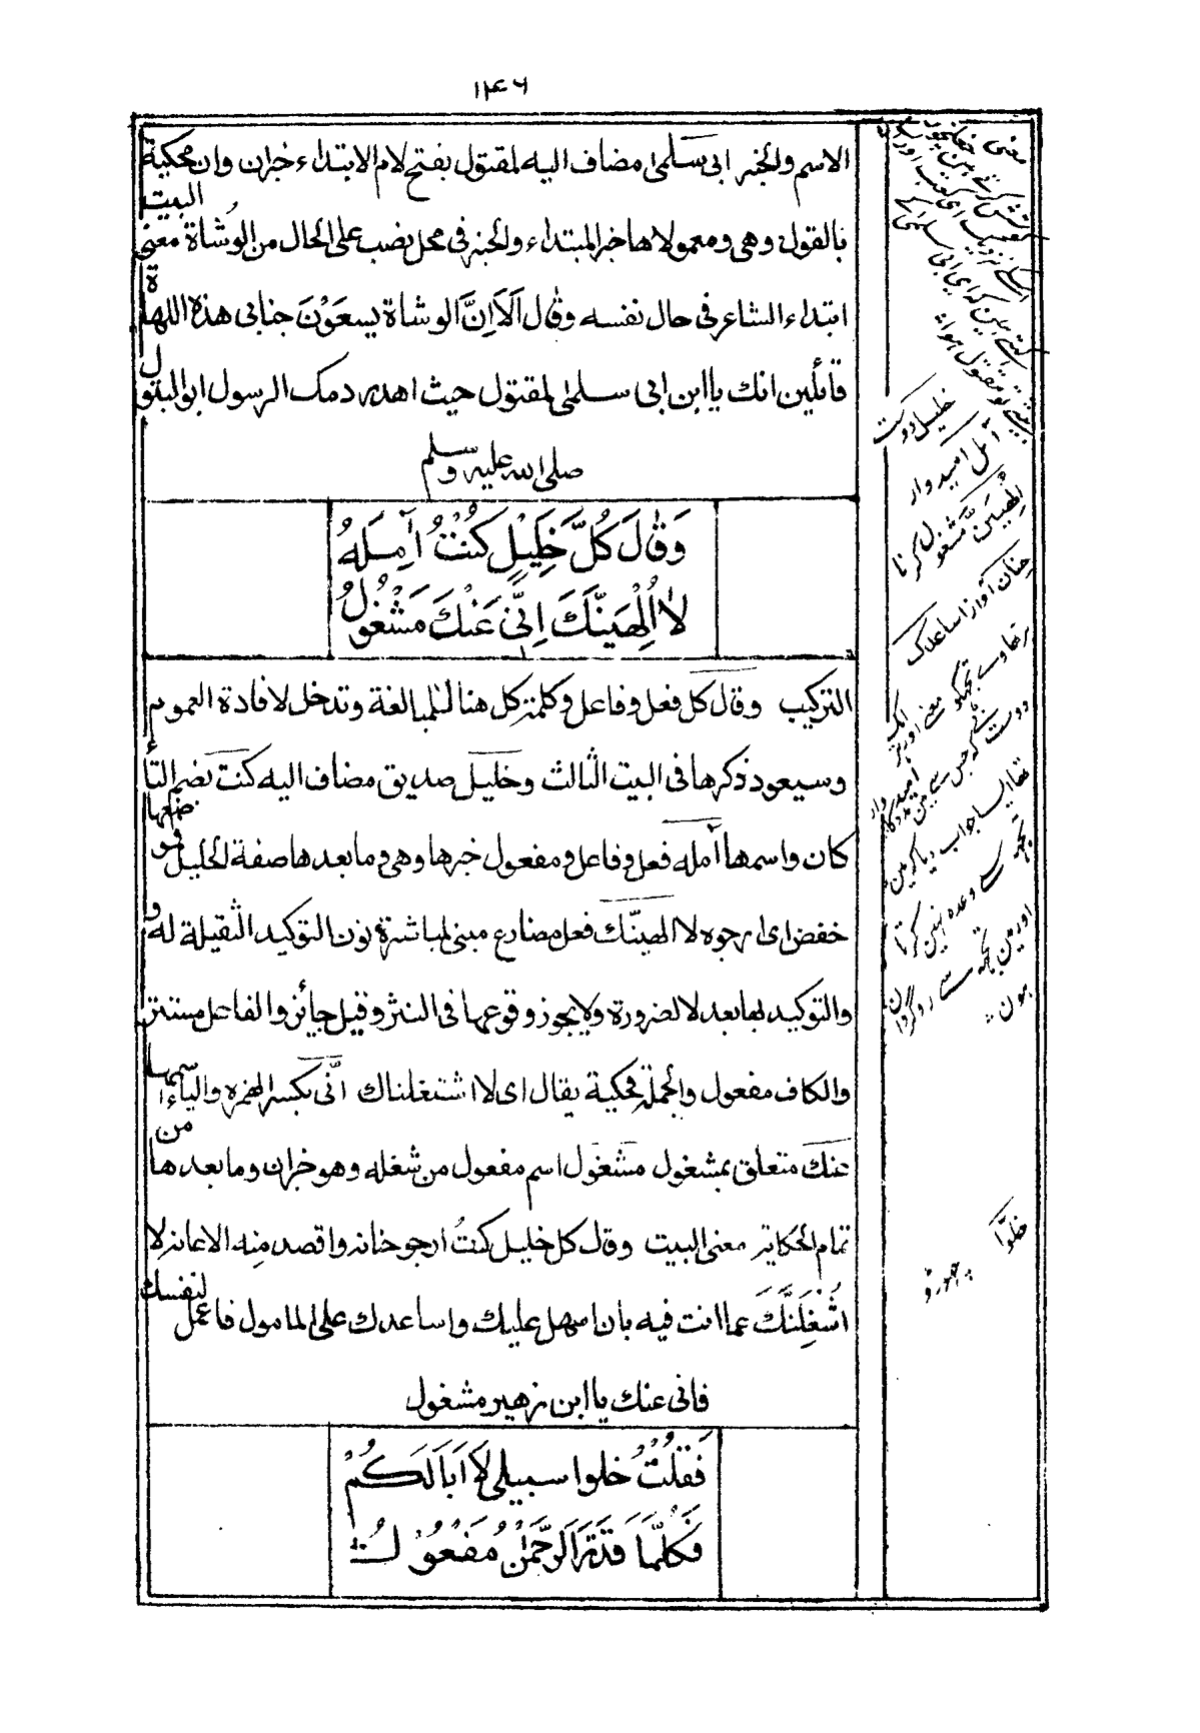 ١٤٦
الاسم والخبر ابی سلمی مضاف اليه لمقتول بفتح لام الابتداء خبران وان محكية
بالقول وهی ومعمولاها خبر المبتداء والخبر فی محل نصب علی الحال من الوُشاة معنی البيت
ابتداء الشاعر فی حال نفسه وقال اَلَا اِنَّ الوشاة يسعَوْنَ جنابی هذه اللهاة
قائلين انك يا ابن ابی سلمی لمقتول حيث اهدر دمك الرسول ابو البتول
صلی الله عليه وسلم
وَقَالَ كُلُّ خَلِيْلٍ كُنْتُ آمِلُهُ
لَا اُلْهِيَنَّكَ اِنِّی عَنْكَ مَشْغُوْلُ
التركيب وقال كل فعل وفاعل وكلمة كل هنا للمبالغة وتدخل لافادة العموم
وسيعود ذكرها فی البيت الثالث وخليل صديق مضاف اليه كنت بضم التاء
كان واسمها آمله فعل وفاعل ومفعول خبرها وهی وما بعدها صفة لخليل
خفض ای ارجوه لا الهينّك فعل مضارع مبنی لمباشرة نون التوكيد الثقيلة له و
والتوكيد بها بعد لا لضرورة ولا يجوز وقوعها فی النثر وقيل جائز والفاعل مستتر
والكاف مفعول والجملة محكية بقال ای لا اشتغلناك انّی بكسر الهمزه والياء اسمها
عنك متعلق بمشغول مشغول اسم مفعول من شغله وهو خبران وما بعدها من
تمام الحكاية معنی البيت وقال كل خليل كنتُ ارجو حنانه واقصد منه الاعانة لا
اشْغِلَنَّكَ عما انت فيه بان اسهل عليك واساعدك علی المامول فاعمل لنفسك
فانی عنك يا ابن زهير مشغول
فَقُلْتُ خلوا سبيلی لَا اَبَا لَكُمْ
فَكُلُّمَا قَدَّرَ الرَّحْمٰنُ مَفْعُوْلُ
خلیل دوست
آمل امیدوار
اُلْهِیَنَّ مشغول کرنا
حنان آواز اساعدک
دوست نے کہ جس سے مین
تھا ایسا جواب دیا کہ مین
تجھ سے وعدہ نہین کرتا
اور مین تجھ سے روگردان
ہون
خلُّوا
چھوڑو